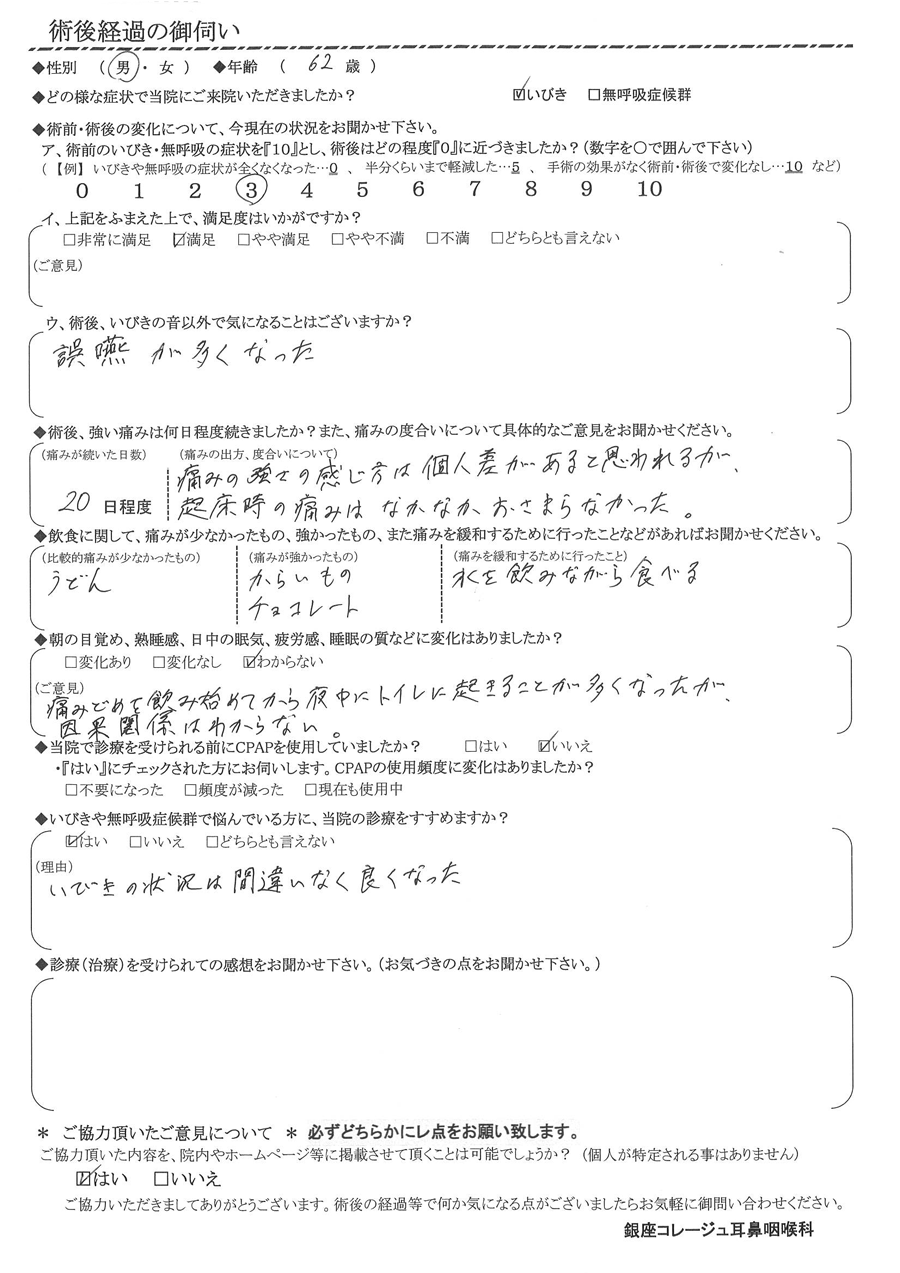 術後経過の御伺い
◆性別 （ 男 ・ 女 ） ◆年齢 （ 62 歳 ）
◆どの様な症状で当院にご来院いただきましたか？ ☑いびき □無呼吸症候群
◆術前・術後の変化について、今現在の状況をお聞かせ下さい。
ア、術前のいびき・無呼吸の症状を『10』とし、術後はどの程度『0』に近づきましたか？（数字を〇で囲んで下さい）
（【例】 いびきや無呼吸の症状が全くなくなった…0 、 半分くらいまで軽減した…5 、 手術の効果がなく術前・術後で変化なし…10 など）
0 1 2 3 4 5 6 7 8 9 10
イ、上記をふまえた上で、満足度はいかがですか？
□非常に満足 ☑満足 □やや満足 □やや不満 □不満 □どちらとも言えない
（ご意見）
ウ、術後、いびきの音以外で気になることはございますか？
誤嚥が多くなった
◆術後、強い痛みは何日程度続きましたか？また、痛みの度合いについて具体的なご意見をお聞かせください。
（痛みが続いた日数） （痛みの出方、度合いについて）
痛みの強さの感じ方は個人差があると思われるが、
20 日程度 起床時の痛みはなかなかおさまらなかった。
◆飲食に関して、痛みが少なかったもの、強かったもの、また痛みを緩和するために行ったことなどがあればお聞かせください。
（比較的痛みが少なかったもの） （痛みが強かったもの） （痛みを緩和するために行ったこと）
うどん からいもの 水を飲みながら食べる
チョコレート
◆朝の目覚め、熟睡感、日中の眠気、疲労感、睡眠の質などに変化はありましたか？
□変化あり □変化なし ☑わからない
（ご意見）
痛みどめを飲み始めてから夜中にトイレに起きることが多くなったが、
因果関係はわからない。
◆当院で診療を受けられる前にCPAPを使用していましたか？ □はい ☑いいえ
・『はい』にチェックされた方にお伺いします。CPAPの使用頻度に変化はありましたか？
□不要になった □頻度が減った □現在も使用中
◆いびきや無呼吸症候群で悩んでいる方に、当院の診療をすすめますか？
☑はい □いいえ □どちらとも言えない
（理由）
いびきの状況は間違いなく良くなった
◆診療（治療）を受けられての感想をお聞かせ下さい。（お気づきの点をお聞かせ下さい。）
＊ ご協力頂いたご意見について ＊ 必ずどちらかにレ点をお願い致します。
ご協力頂いた内容を、院内やホームページ等に掲載させて頂くことは可能でしょうか？ （個人が特定される事はありません）
☑はい □いいえ
ご協力いただきましてありがとうございます。術後の経過等で何か気になる点がございましたらお気軽に御問い合わせください。
銀座コレージュ耳鼻咽喉科